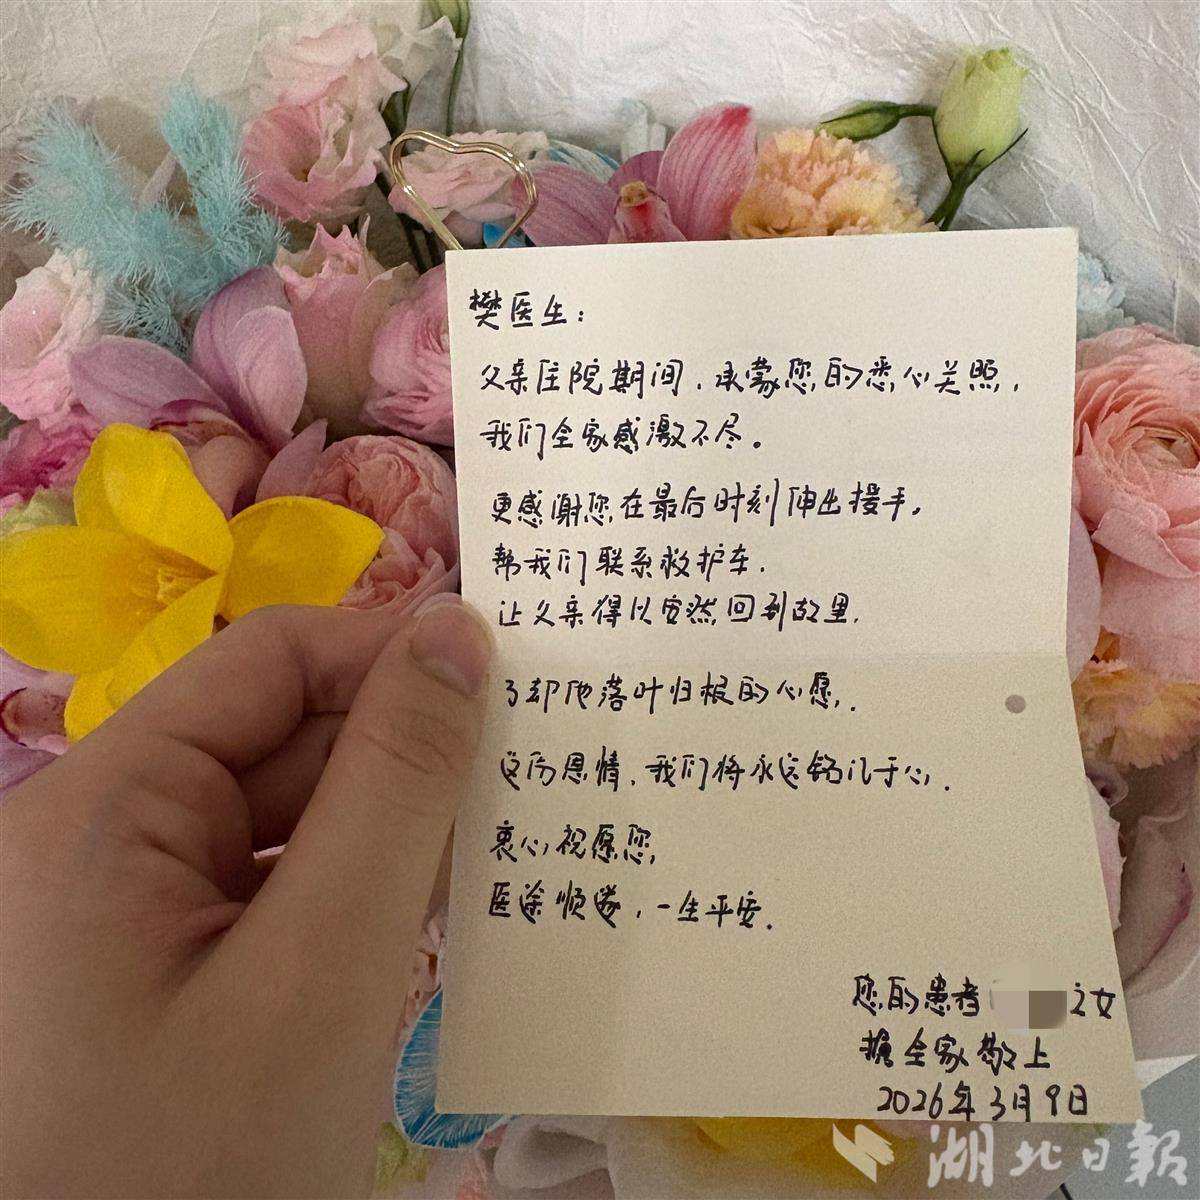 樊医生：
父亲住院期间，承蒙您的悉心关照，
我们全家感激不尽。
更感谢您在最后时刻伸出援手，
帮我们联系救护车，
让父亲得以安然回到故里，
了却他落叶归根的心愿，
这份恩情，我们将永远铭记于心，
衷心祝愿您，
医途顺遂，一生平安，
您的患者 之女
携全家敬上
2026年3月9日
湖北日報